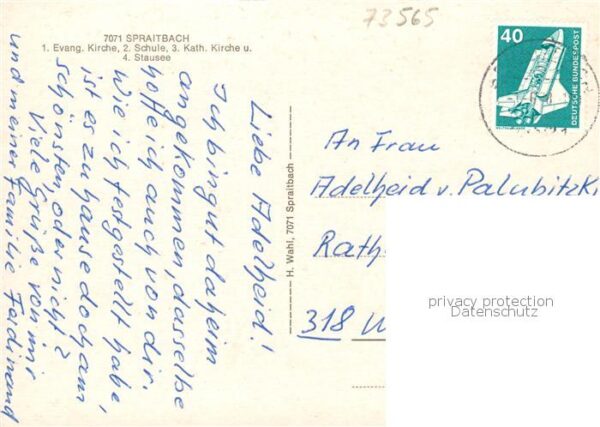 73565
7071 SPRAITBACH
1. Evang. Kirche, 2. Schule, 3. Kath. Kirche u.
4. Stausee
Liebe Adelheid!
Ich bin gut daheim
angekommen, dasselbe
hoffe ich auch von dir.
Wie ich festgestellt habe,
ist es zu hause doch am
schönsten, oder nicht?
Viele Grüße von mir
und meiner Familie Ferdinand
H. Wahl, 7071 Spraitbach
40
DEUTSCHE BUNDESPOST
An Frau
Adelheid v. Palubitzki
Rath
318 W
privacy protection
Datenschutz